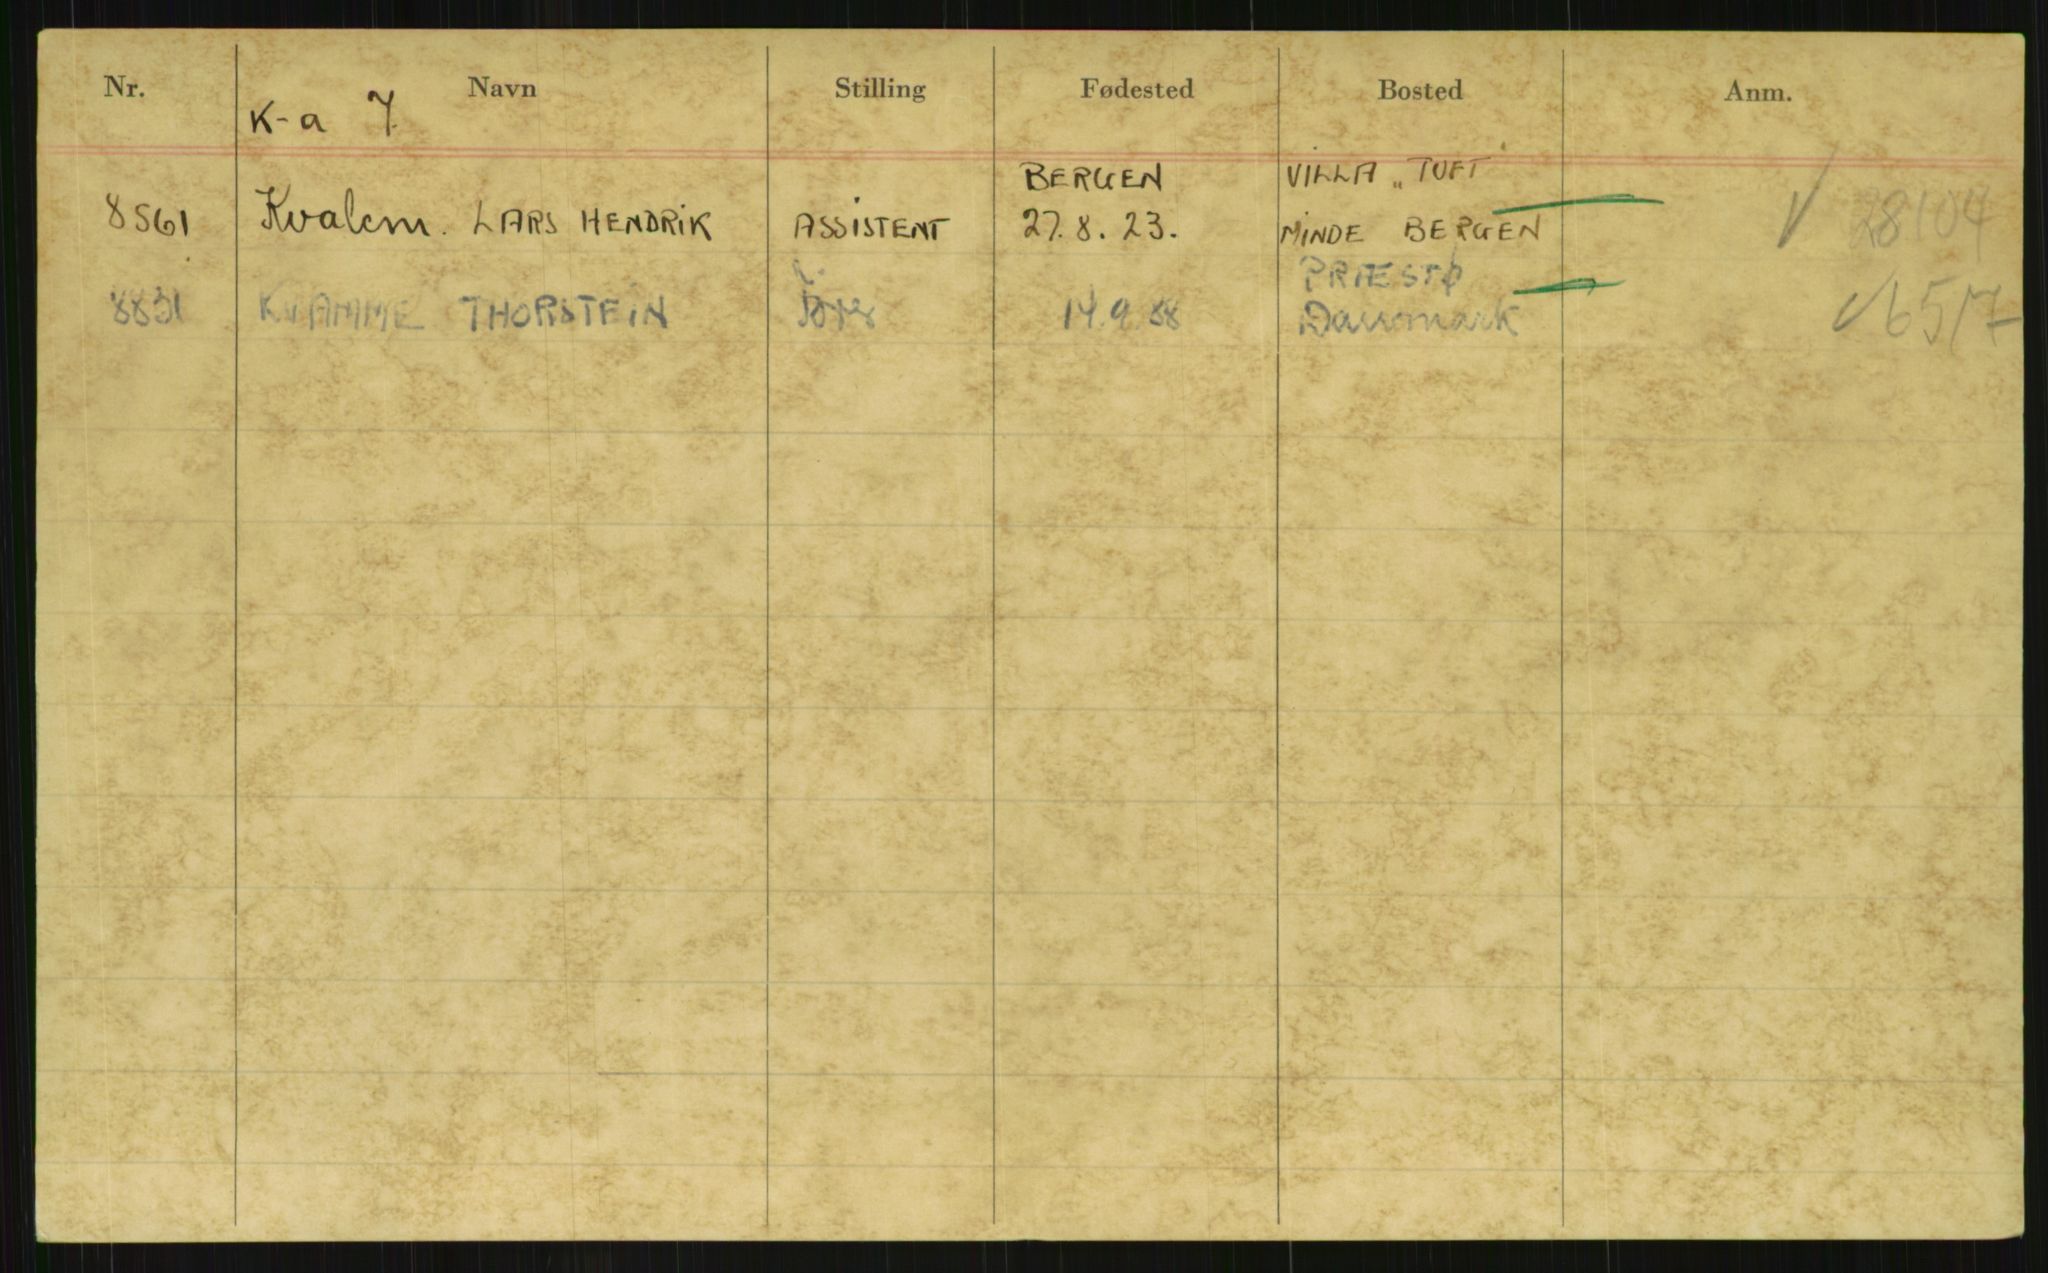 Nr. Navn Stilling Fødested Bosted Anm.
K-a 7
BERGEN VILLA „TUFT"
8561 Kvalem. LARS HENDRIK ASSISTENT 27.8.23. MINDE BERGEN 28104
PRÆSTØ
8851 KVAMME THORSTEIN 14.9.88 Danmark 6517